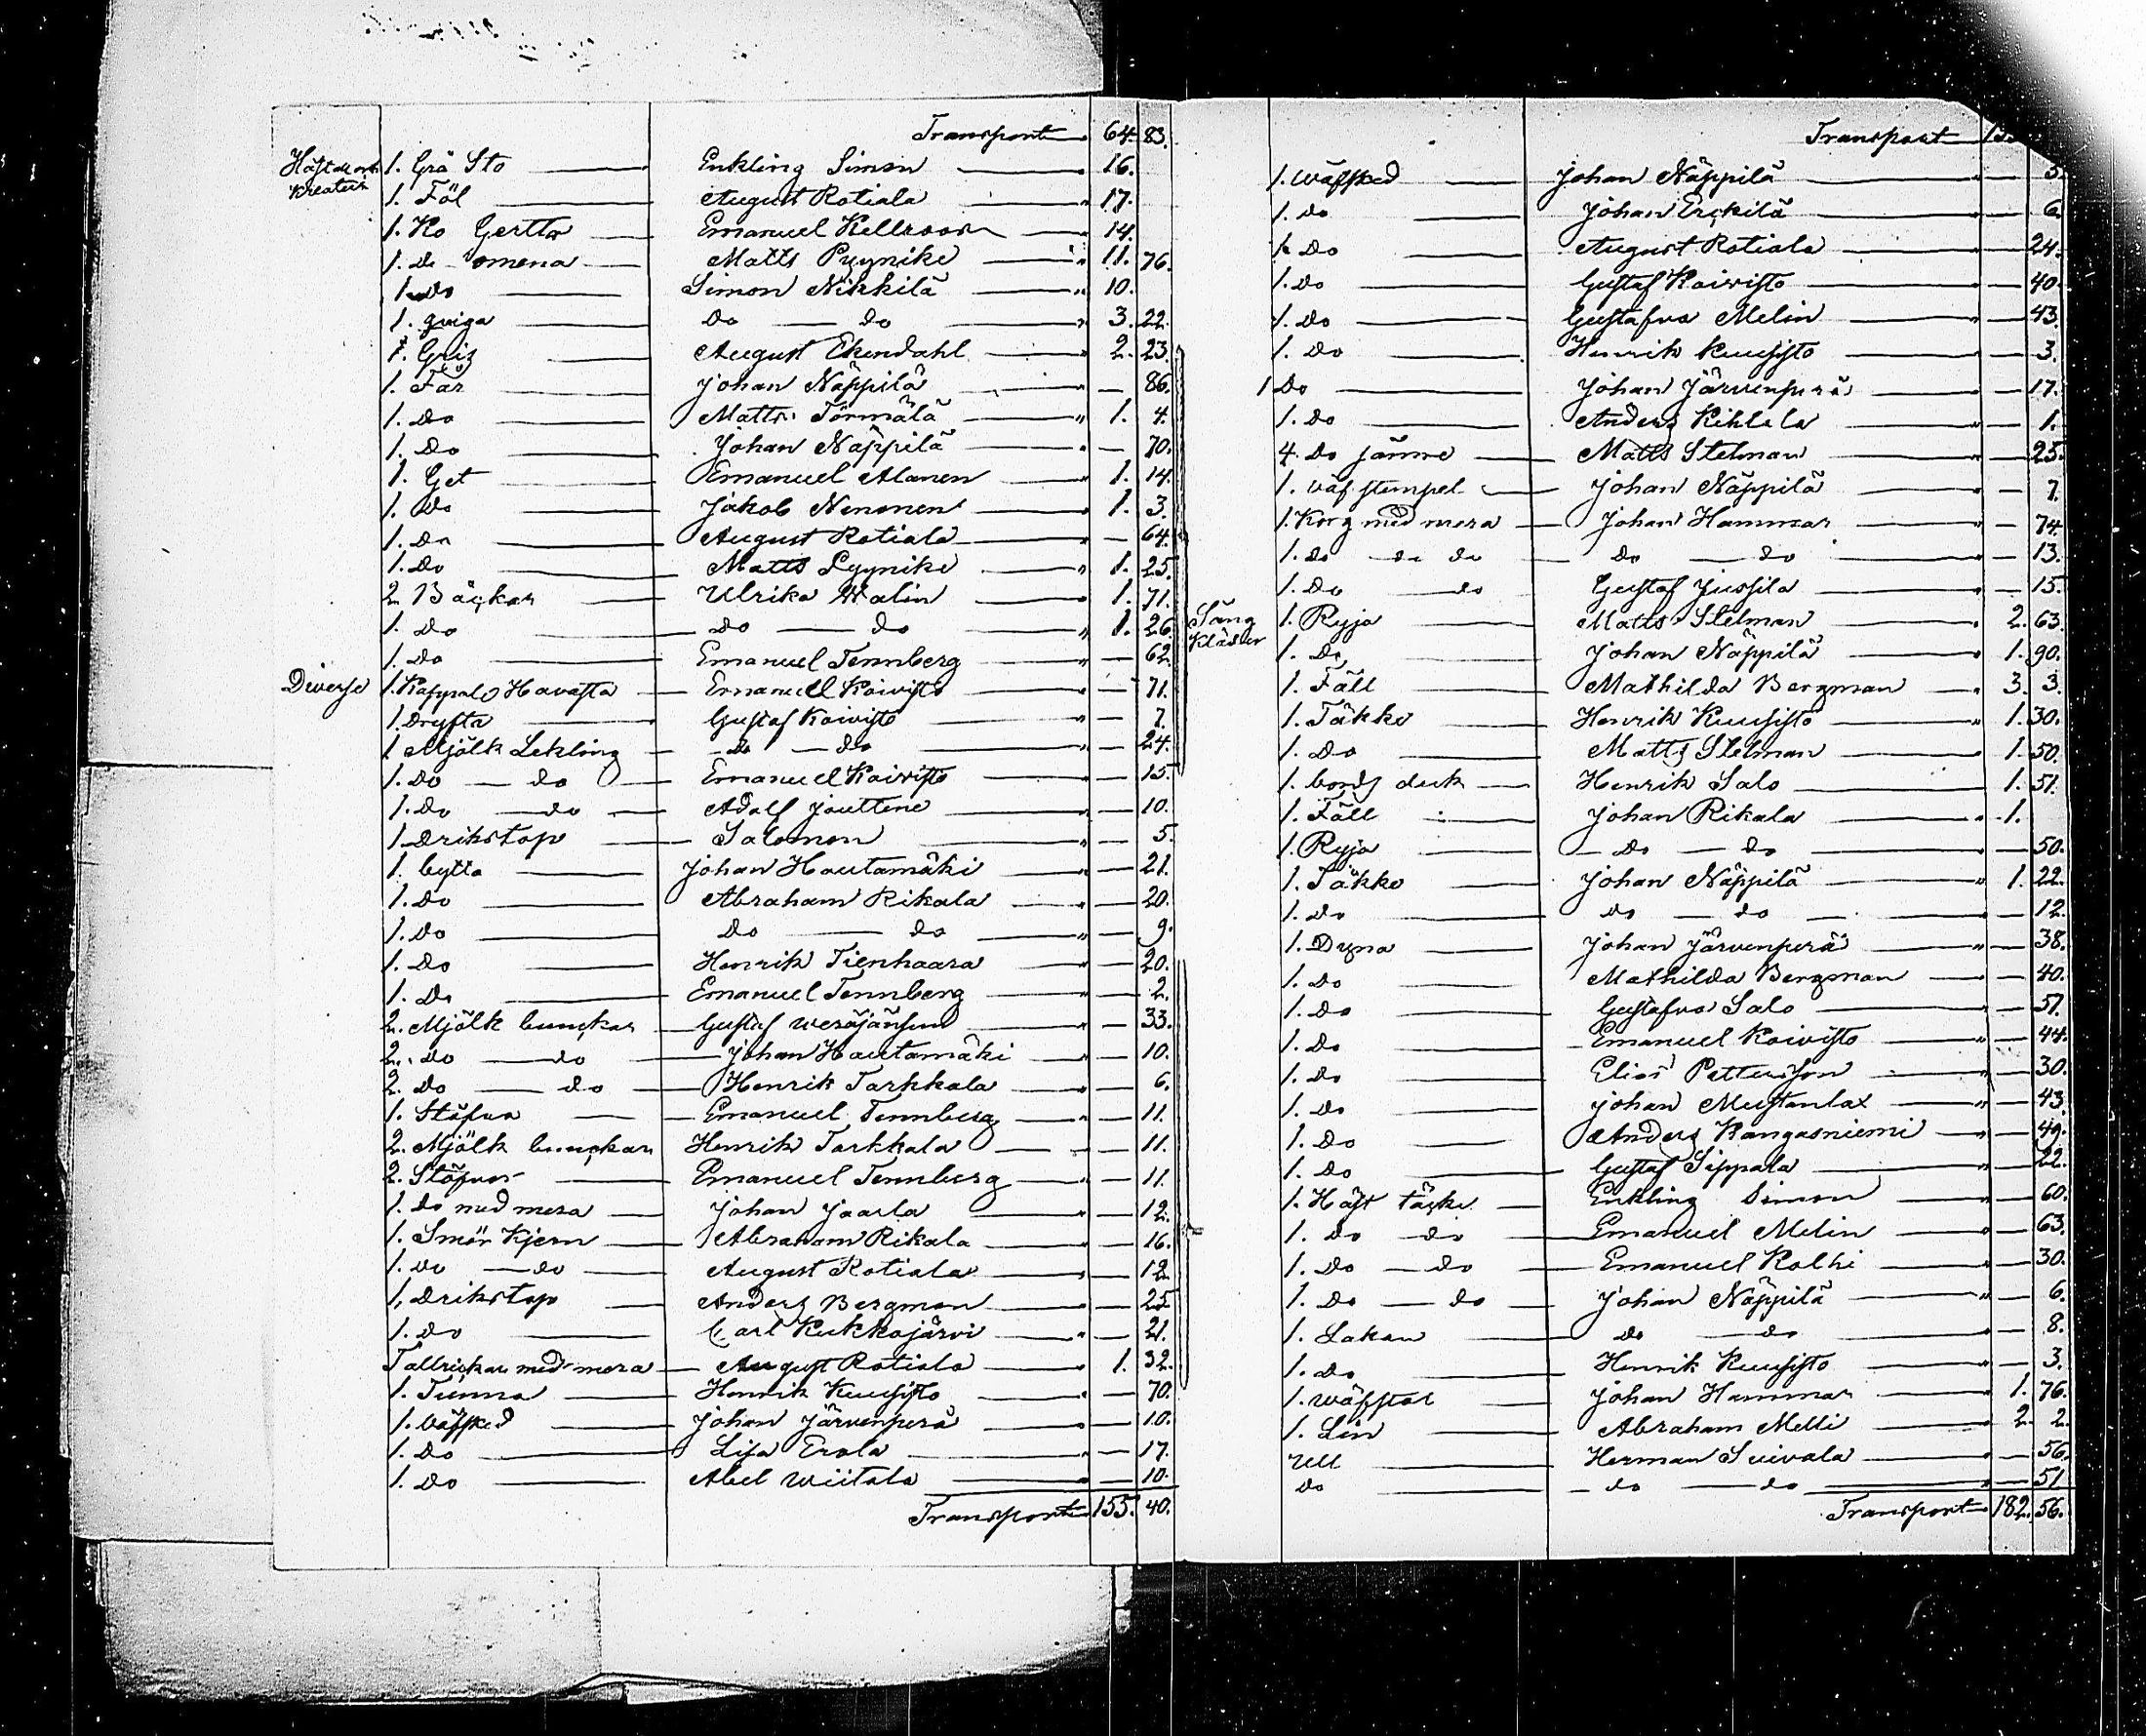 Transport 64. 83.
Häst och Kreatur 1. Grå Sto Enkling Simon " 16.
1. Föl August Rotiala " 17.
1. Ko Gertta Emanuel Kellroos " 14.
1. Do omena Matts Pyynike " 11. 76.
1. Do Simon Nikkilä " 10.
1. qviga Do Do " 3. 22.
1. Gris August Ekendahl " 2. 23.
1. Får Johan Näppilä " — 86.
1. Do Matts Törmälä " 1. 4.
1. Do Johan Näppilä " — 70.
1. Get Emanuel Alanen " 1. 14.
1. Do Jakob Nenonen " 1. 3.
1. Do August Rotiala " — 64.
1. Do Matts Pyynike " 1. 25.
2 Bäckar Ulrika Walin " 1. 71.
1. Do do do " 1. 26.
1. Do Emanuel Tennberg " — 62
Diverse 1. Kappa Havasta Emanuel Koivisto " — 71.
1. Dryfta Gustaf Koivisto " — 7.
1 Mjölk Lekling do do " — 24.
1. Do do Emanuel Koivisto " — 15.
1. Do do Adolf Jouttene " — 10.
1 Drikstop Salomon " — 5.
1. bytta Johan Hautamäki " — 21.
1. Do Abraham Rikala " — 20.
1. Do Do do " — 9.
1. Do Henrik Tienhaara " — 20.
1. Do Emanuel Tennberg " — 2.
2. Mjölk bunckar Gustaf " — 33.
2. Do do Johan Hautamäki " — 10.
2. Do do Henrik Tarkkala " — 6.
1. Stäfva Emanuel Tennberg " — 11.
2. Mjölk bunckar Henrik Tarkkala " — 11.
2. Stäfvor Emanuel Tennberg " — 11.
1. Do med mera Johan Jaarla " — 12.
1. Smör Kjern Abraham Rikala " — 16.
1. Do do August Rotiala " — 12
1. Drikstop Anders Bergman " — 25
1. Do Carl Kukkojärvi " — 21.
Tallrickar med mera August Rotiala " 1. 32.
1. Tunna Henrik Kuusisto " — 70.
1. Wäfsked Johan Järvenperä " — 10.
1. Do Lisa Erola " — 17.
1. Do Abel Wiitala " — 10.
Transport 155. 40.
Transport
1. Wäfsked Johan Näppilä " — 5.
1. Do Johan Erckilä " — 6.
1. Do August Rotiala " — 24.
1. Do Gustaf Koivisto " — 40.
1. Do Gustafva Melin " — 43.
1. Do Henrik Kuusisto " — 3.
1 Do Johan Järvenperä " — 17.
1. Do Anders Kihlala " — 1.
4. Do jämne Matts Stelman " — 25.
1. väf stempel Johan Näppilä " — 7.
1. Korg med mera Johan Hammar " — 74.
1. Do do do Do do " — 13.
1. Do do Gustaf Jussila " — 15.
Säng Kläder 1. Ryja Matts Stelman " 2. 63.
1. Do Johan Näppilä " 1. 90.
1. Fäll Mathilda Bergman " 3. 3.
1. Täkke Henrik Kuusisto " 1. 30.
1. Do Matts Stelman " 1. 50.
1. bords duk Henrik Salo 1. 51.
1. Fäll Johan Rikala " 1.
1. Ryja Do do " — 50.
1. Täkke Johan Näppilä " 1. 22.
1. Do do do " — 12.
1. Dyna Johan Järvenperä " — 38.
1. Do Mathilda Bergman " — 40.
1. Do Gustafva Salo " — 51.
1. Do Emanuel Koivisto " — 44.
1. Do Elias Pettersson " — 30.
1. Do Johan Mustanlax " — 43.
1. Do Anders Kangasniemi " — 49.
1. Do Gustaf Sippala " — 22.
1. Häst täcke Enkling Simon " — 60.
1. Do do Emanuel Melin " — 63.
1. Do do Emanuel Kolhi " — 30.
1. Do do Johan Näppilä " — 6.
1. Lakan do do " — 8.
1. Do Henrik Kuusisto " — 3.
1. Wäfstol Johan Hammar " 1. 76.
1. Lin Abraham Melli " 2. 2.
Ull Herman Suivala " — 56.
do do do " — 51
Transport 182. 56.